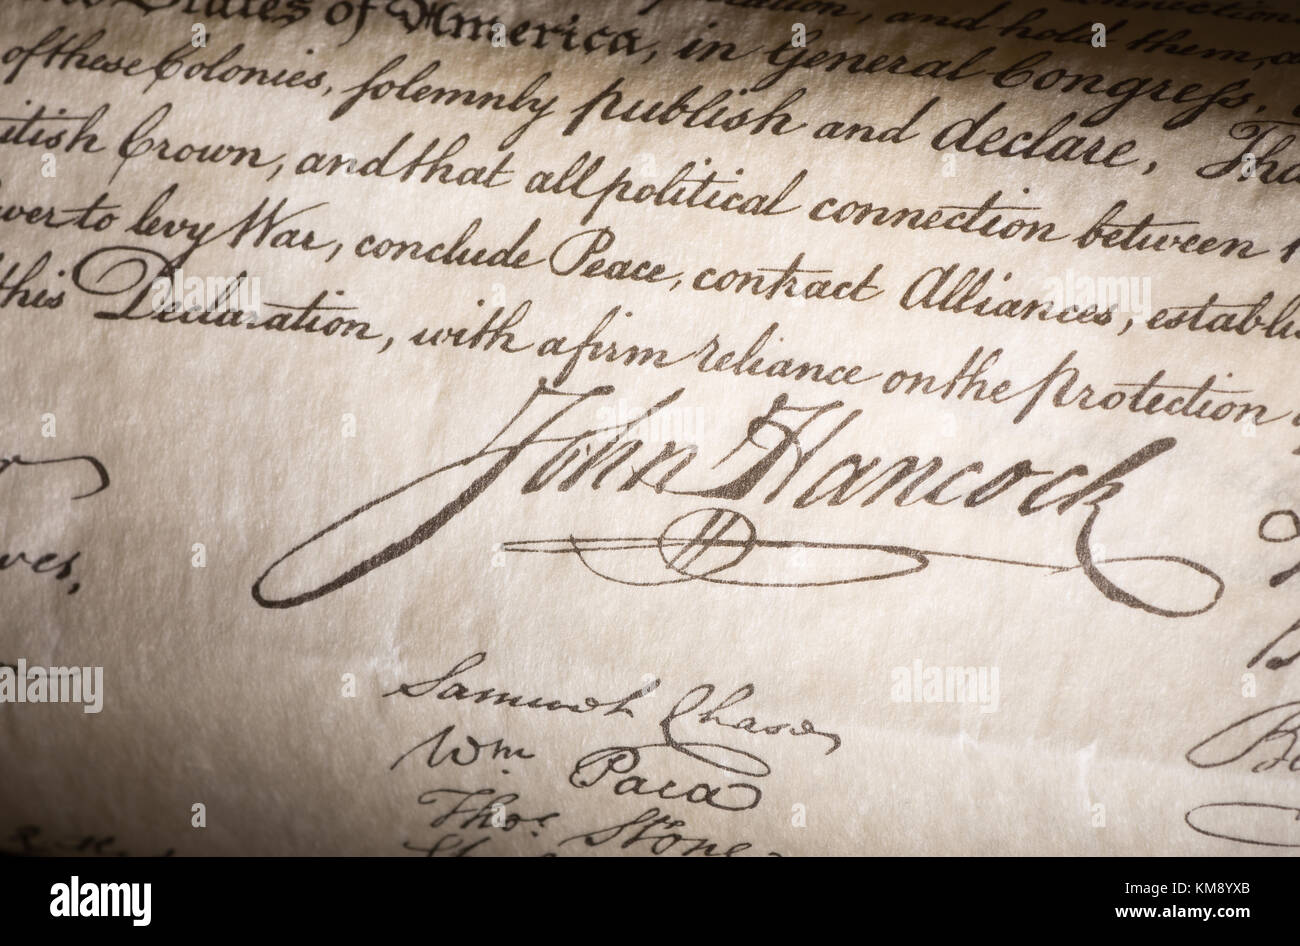 States of America, in General Congress,
and hold them,
of these Colonies, solemnly publish and declare, Tha
itish Crown, and that all political connection between
wer to levy War, conclude Peace, contract Alliances, establi
this Declaration, with a firm reliance on the Protection
John Hancock
ver,
Samuel Chase
Wm Paca
Thos. Stone
alamy stock photo
alamy
Image ID: KM89YXB
www.alamy.com